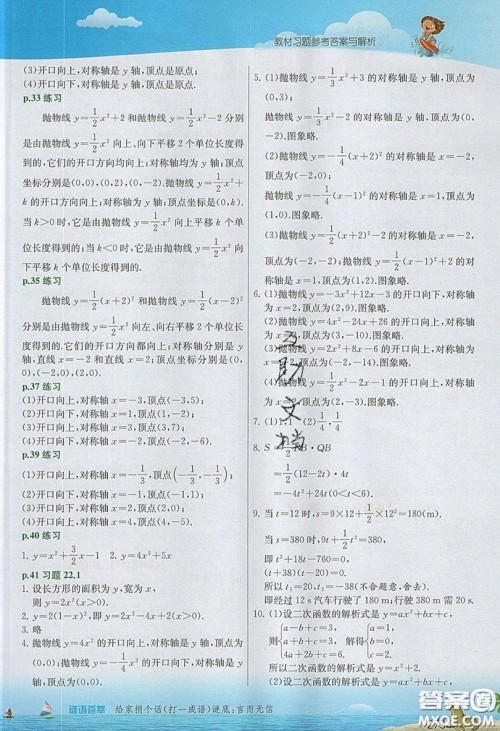 教材习题参考答案与解析
(3)开口向上,对称轴是 y 轴,顶点是原点;
(4)开口向下,对称轴是 y 轴,顶点是原点.
p.33 练习
抛物线 y=1/2x²+2 和抛物线 y=1/2x²-2 分别
是由抛物线 y=1/2x² 向上、向下平移 2 个单位长度得
到的,它们的开口方向均向上;对称轴均为 y 轴;顶点
坐标分别是(0,0),(0,2),(0,-2).抛物线 y=1/2x²+
k 的开口方向向上,对称轴为 y 轴,顶点坐标是(0,k).
当 k>0 时,它是由抛物线 y=1/2x² 向上平移 k 个单
位长度得到的;当 k<0 时,它是由抛物线 y=1/2x² 向
下平移 个单位长度得到的.
p.35 练习
抛物线 y=1/2(x+2)² 和抛物线 y=1/2(x-2)²
分别是由抛物线 y=1/2x² 向左、向右平移 2 个单位长
度得到的,它们的开口方向都向上;对称轴分别是 y
轴,直线 x=-2 和直线 x=2;顶点坐标分别是(0,0),
(-2,0),(2,0).
p.37 练习
(1)开口向上,对称轴 x=-3,顶点(-3,5);
(2)开口向下,对称轴 x=1,顶点(1,-2);
(3)开口向上,对称轴 x=3,顶点(3,7);
(4)开口向下,对称轴 x=-2,顶点(-2,6).
p.39 练习
(1)开口向上,对称轴 x=-1/3,顶点(-1/3,-1/3);
(2)开口向下,对称轴 x=-1,顶点(-1,1);
(3)开口向下,对称轴 x=2,顶点(2,0);
(4)开口向上,对称轴 x=4,顶点(4,-5).
p.40 练习
1. y=x²+3/2x-1 2. y=4x²+5x
p.41 习题 22.1
1. 设长方形的面积为 y,宽为 x,
则 y=2x².
3. 略
4. 抛物线 y=4x² 的开口向上,对称轴为 y 轴,顶点为
(0,0);抛物线 y=-4x² 的开口向下,对称轴为 y
轴,顶点为(0,0);抛物线 y=-1/4x² 的开口向下,
对称轴为 y 轴,顶点为(0,0).
5. (1)抛物线 y=1/3x²+3 的对称轴是 y 轴,顶点为
(0,3);
抛物线 y=1/3x²-2 的对称轴是 y 轴,顶点为
(0,-2).图象略.
(2)抛物线 y=-1/4(x+2)² 的对称轴是 x=-2,
顶点为(-2,0);
抛物线 y=-1/4(x-1)² 的对称轴是 x=1,顶点为
(1,0).图象略.
(3)抛物线 y=1/2(x+2)²-2 的对称轴是 x=-2,
顶点为(-2,-2);抛物线 y=1/2(x-1)²+2 的对
称轴是 x=1,顶点为(1,2).图象略.
6. (1)抛物线 y=-3x²+12x-3 的开口向下,对称轴
为 x=2,顶点为(2,9).图象略.
(2)抛物线 y=4x²-24x+26 的开口向上,对称轴
为 x=3,顶点为(3,-10).图象略.
(3)抛物线 y=2x²+8x-6 的开口向上,对称轴为
x=-2,顶点为(-2,-14).图象略.
(4)抛物线 y=1/2x²-2x-1 的开口向上,对称轴为
x=2,顶点为(2,-3).图象略.
7. (1) (2)1/4,1/4
8. S=1/2PB·QB
=1/2(12-2t)·4t
=-4t²+24t(0<t<6).
9. 当 t=12 时,s=9×12+1/2×12²=180(m).
当 s=380 时,9t+1/2t²=380,
即 t²+18t-760=0,
(t+38)(t-20)=0.
所以 t=20.
即经过 12 s 汽车行驶了 180 m,行驶 380 m 需 20 s.
10. (1)设二次函数的解析式是 y=ax²+bx+c,
则{a-b+c=3, a+b+c=3, 4a+2b+c=6. 解得{a=1, b=0, c=2.
所以二次函数的解析式是 y=x²+2.
(2)设二次函数的解析式是 y=ax²+bx+c,
互助文档
谜语荟萃 给家捎个话(打一成语)谜底:言而无信
答案圈
MXQE.COM